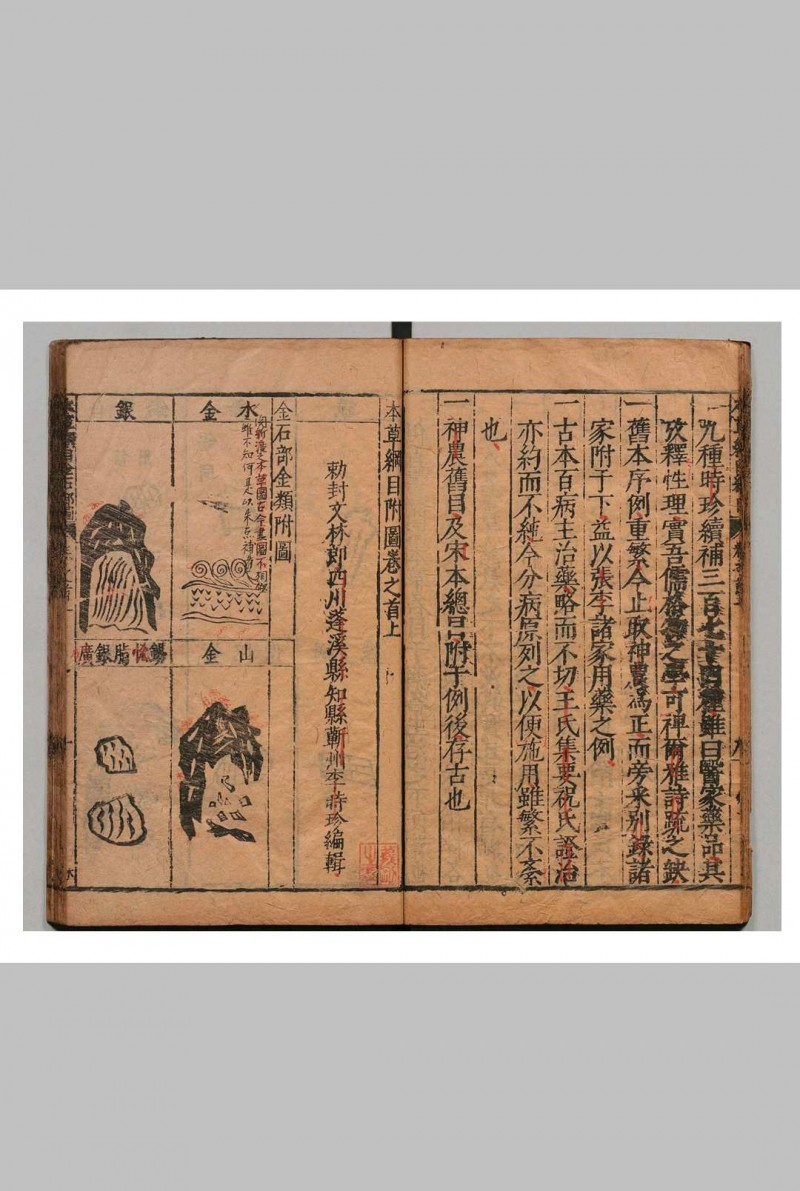 九種時珍續補三百七十四種雖曰醫家藥品其
攷釋性理實吾儒格物之學可裨爾雅詩疏之缺
一舊本序例重繁今止取神農為正而旁采別錄諸
家附于下益以張李諸家用藥之例
一古本百病主治藥略而不切王氏集要祝氏證治
亦約而不純今分病原列之以便施用雖繁不紊
也
一神農舊目及宋本總目附于例後存古也
本草綱目附圖卷之首上
勅封文林郎四川蓬溪縣知縣蘄州李時珍編輯
金石部金類附圖
水金
銀
山金
錫